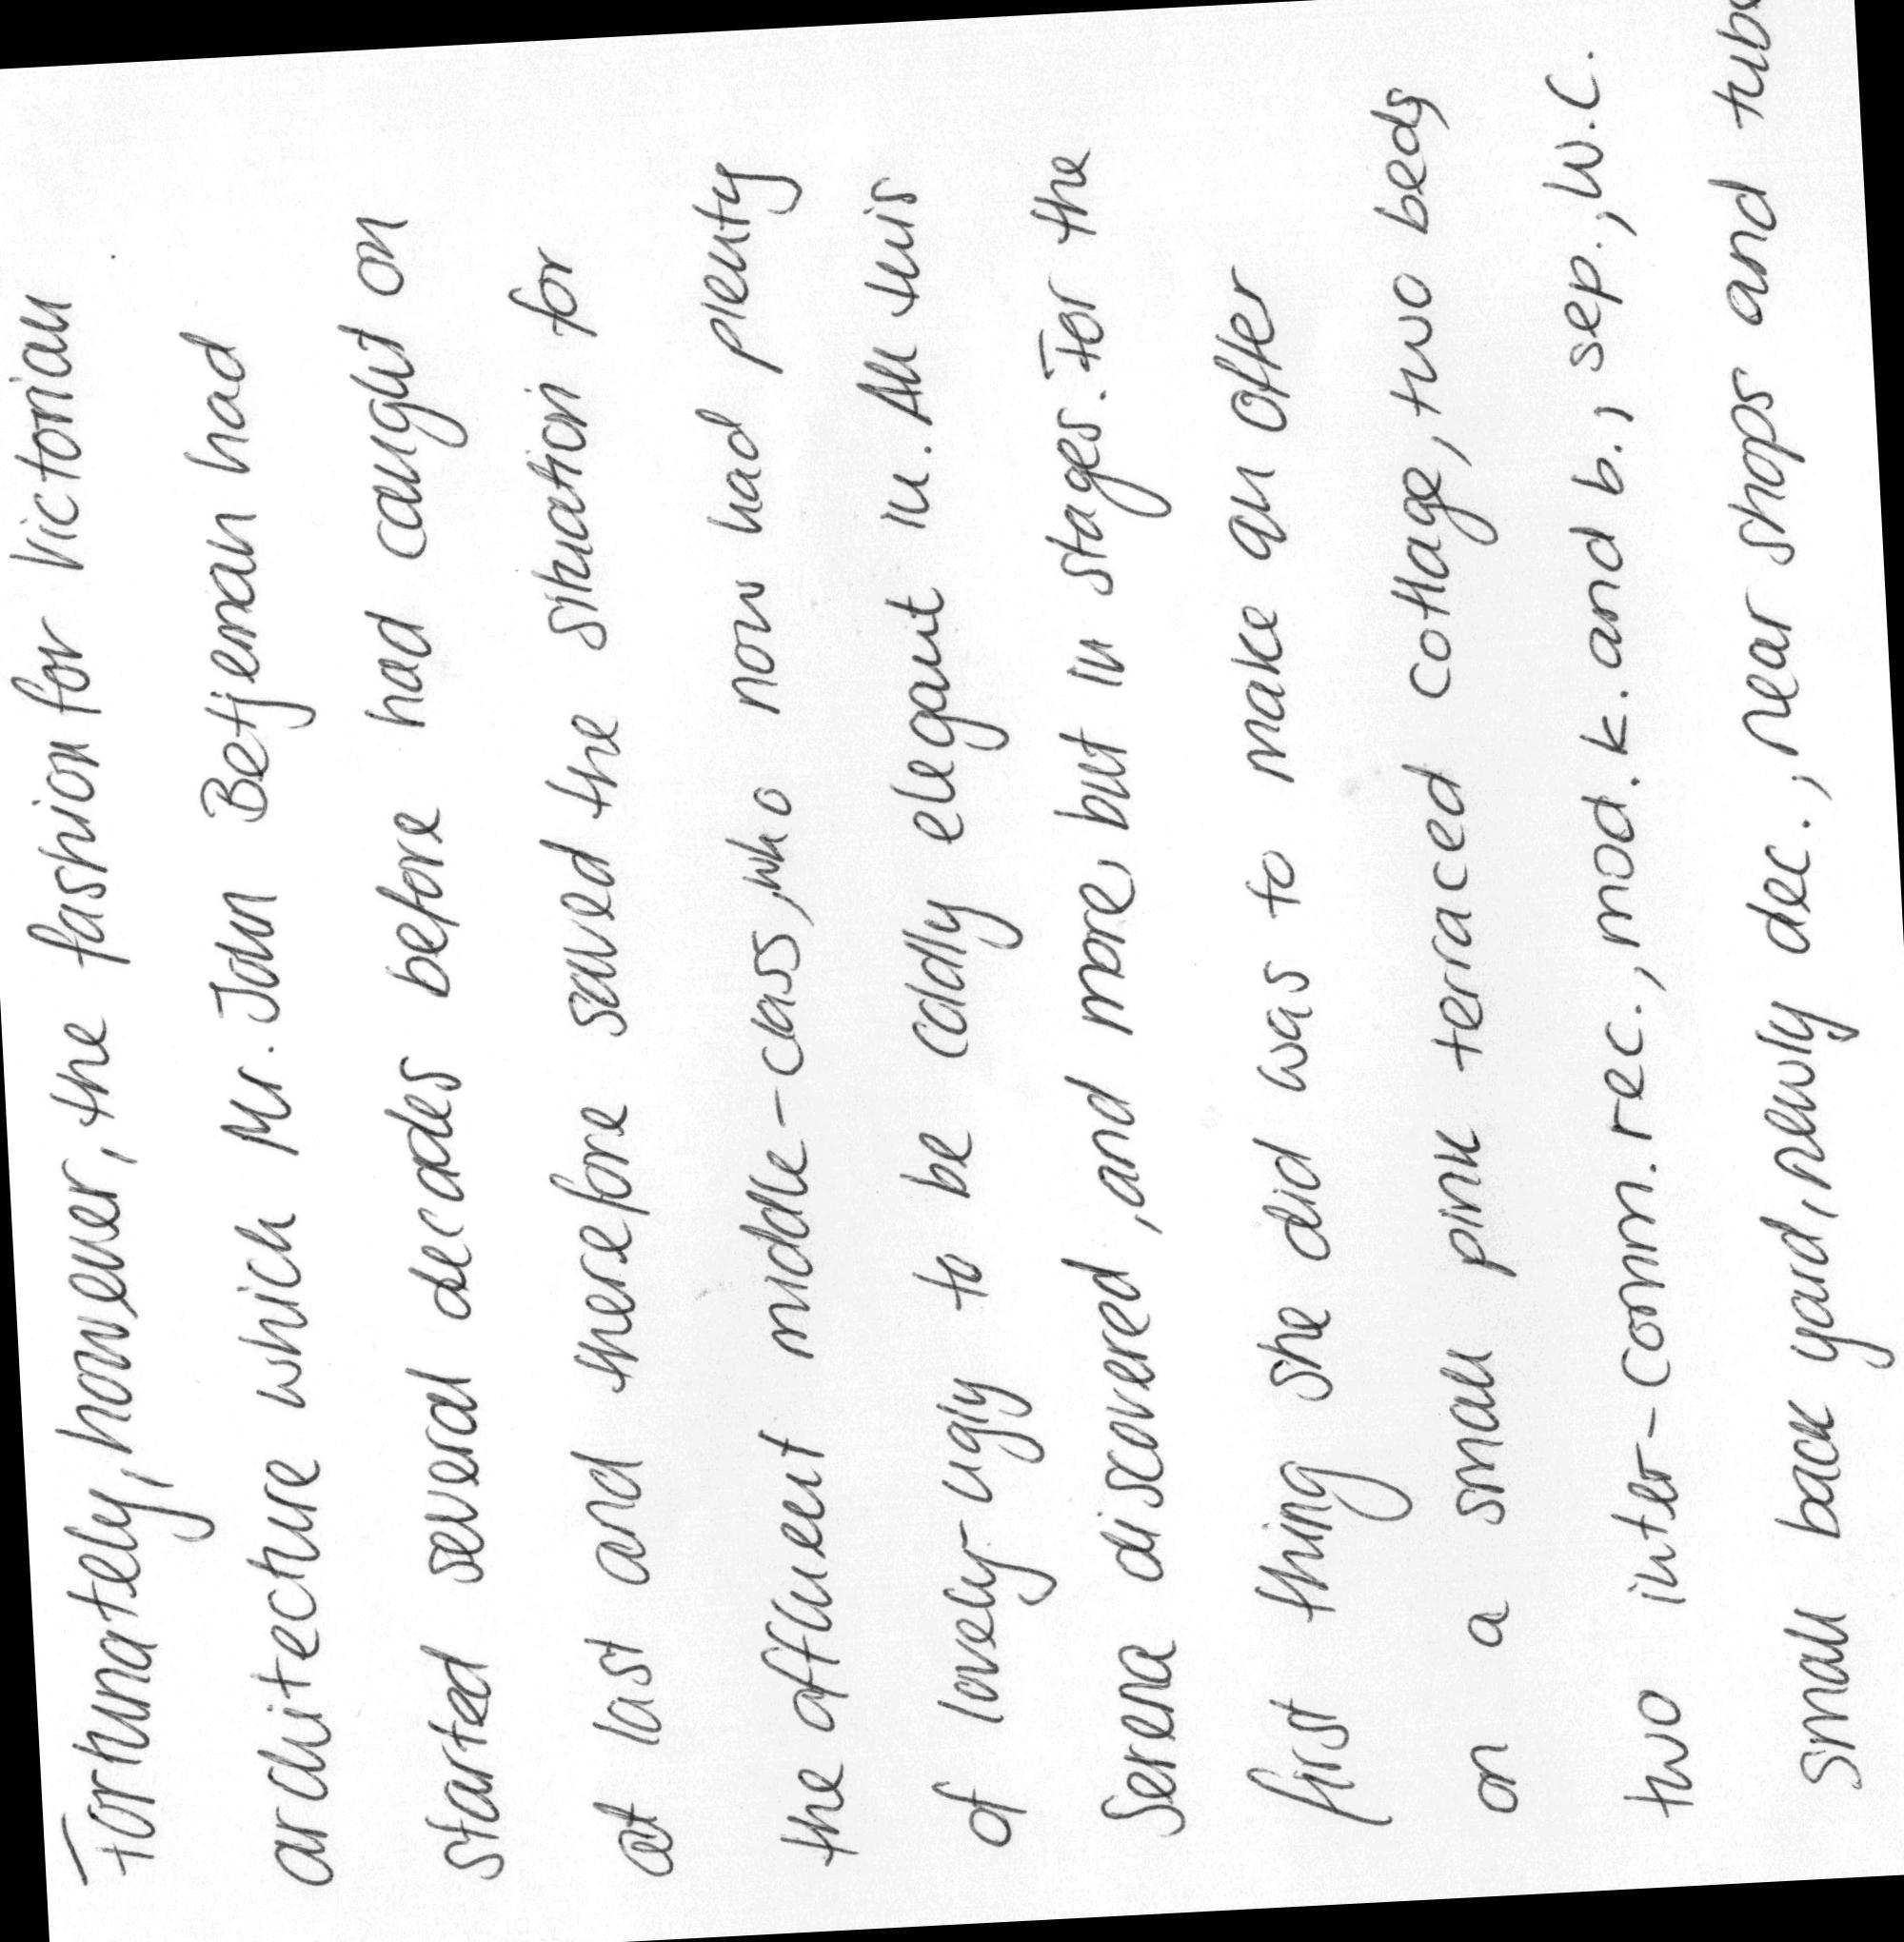 Fortunately, however, the fashion for Victorian
architecture which Mr. John Betjeman had
started several decades before had caught on
at last and therefore saved the situation for
the affluent middle-class, who now had plenty
of lovely-ugly to be coldly elegant in. All this
Serena discovered, and more, but in stages. For the
first thing she did was to make an offer
on a small pink terraced cottage, two beds
two inter-comm. rec., mod. k. and b., sep., W.C.
small back yard, newly dec., near shops and tube